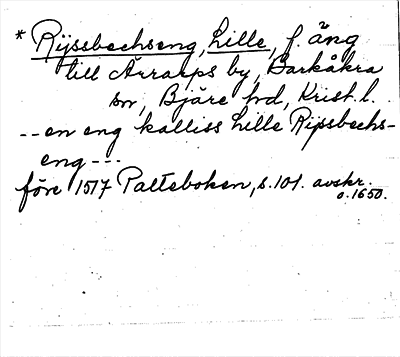 * Rijssbechseng, Lille, f. äng
till Ärrarps by, Barkåkra
sn, Bjäre hd, Krist. l.
--en eng kalliss Lille Rijssbechs-
eng---
före 1517 Palteboken, s. 101. avskr.
o. 1650.